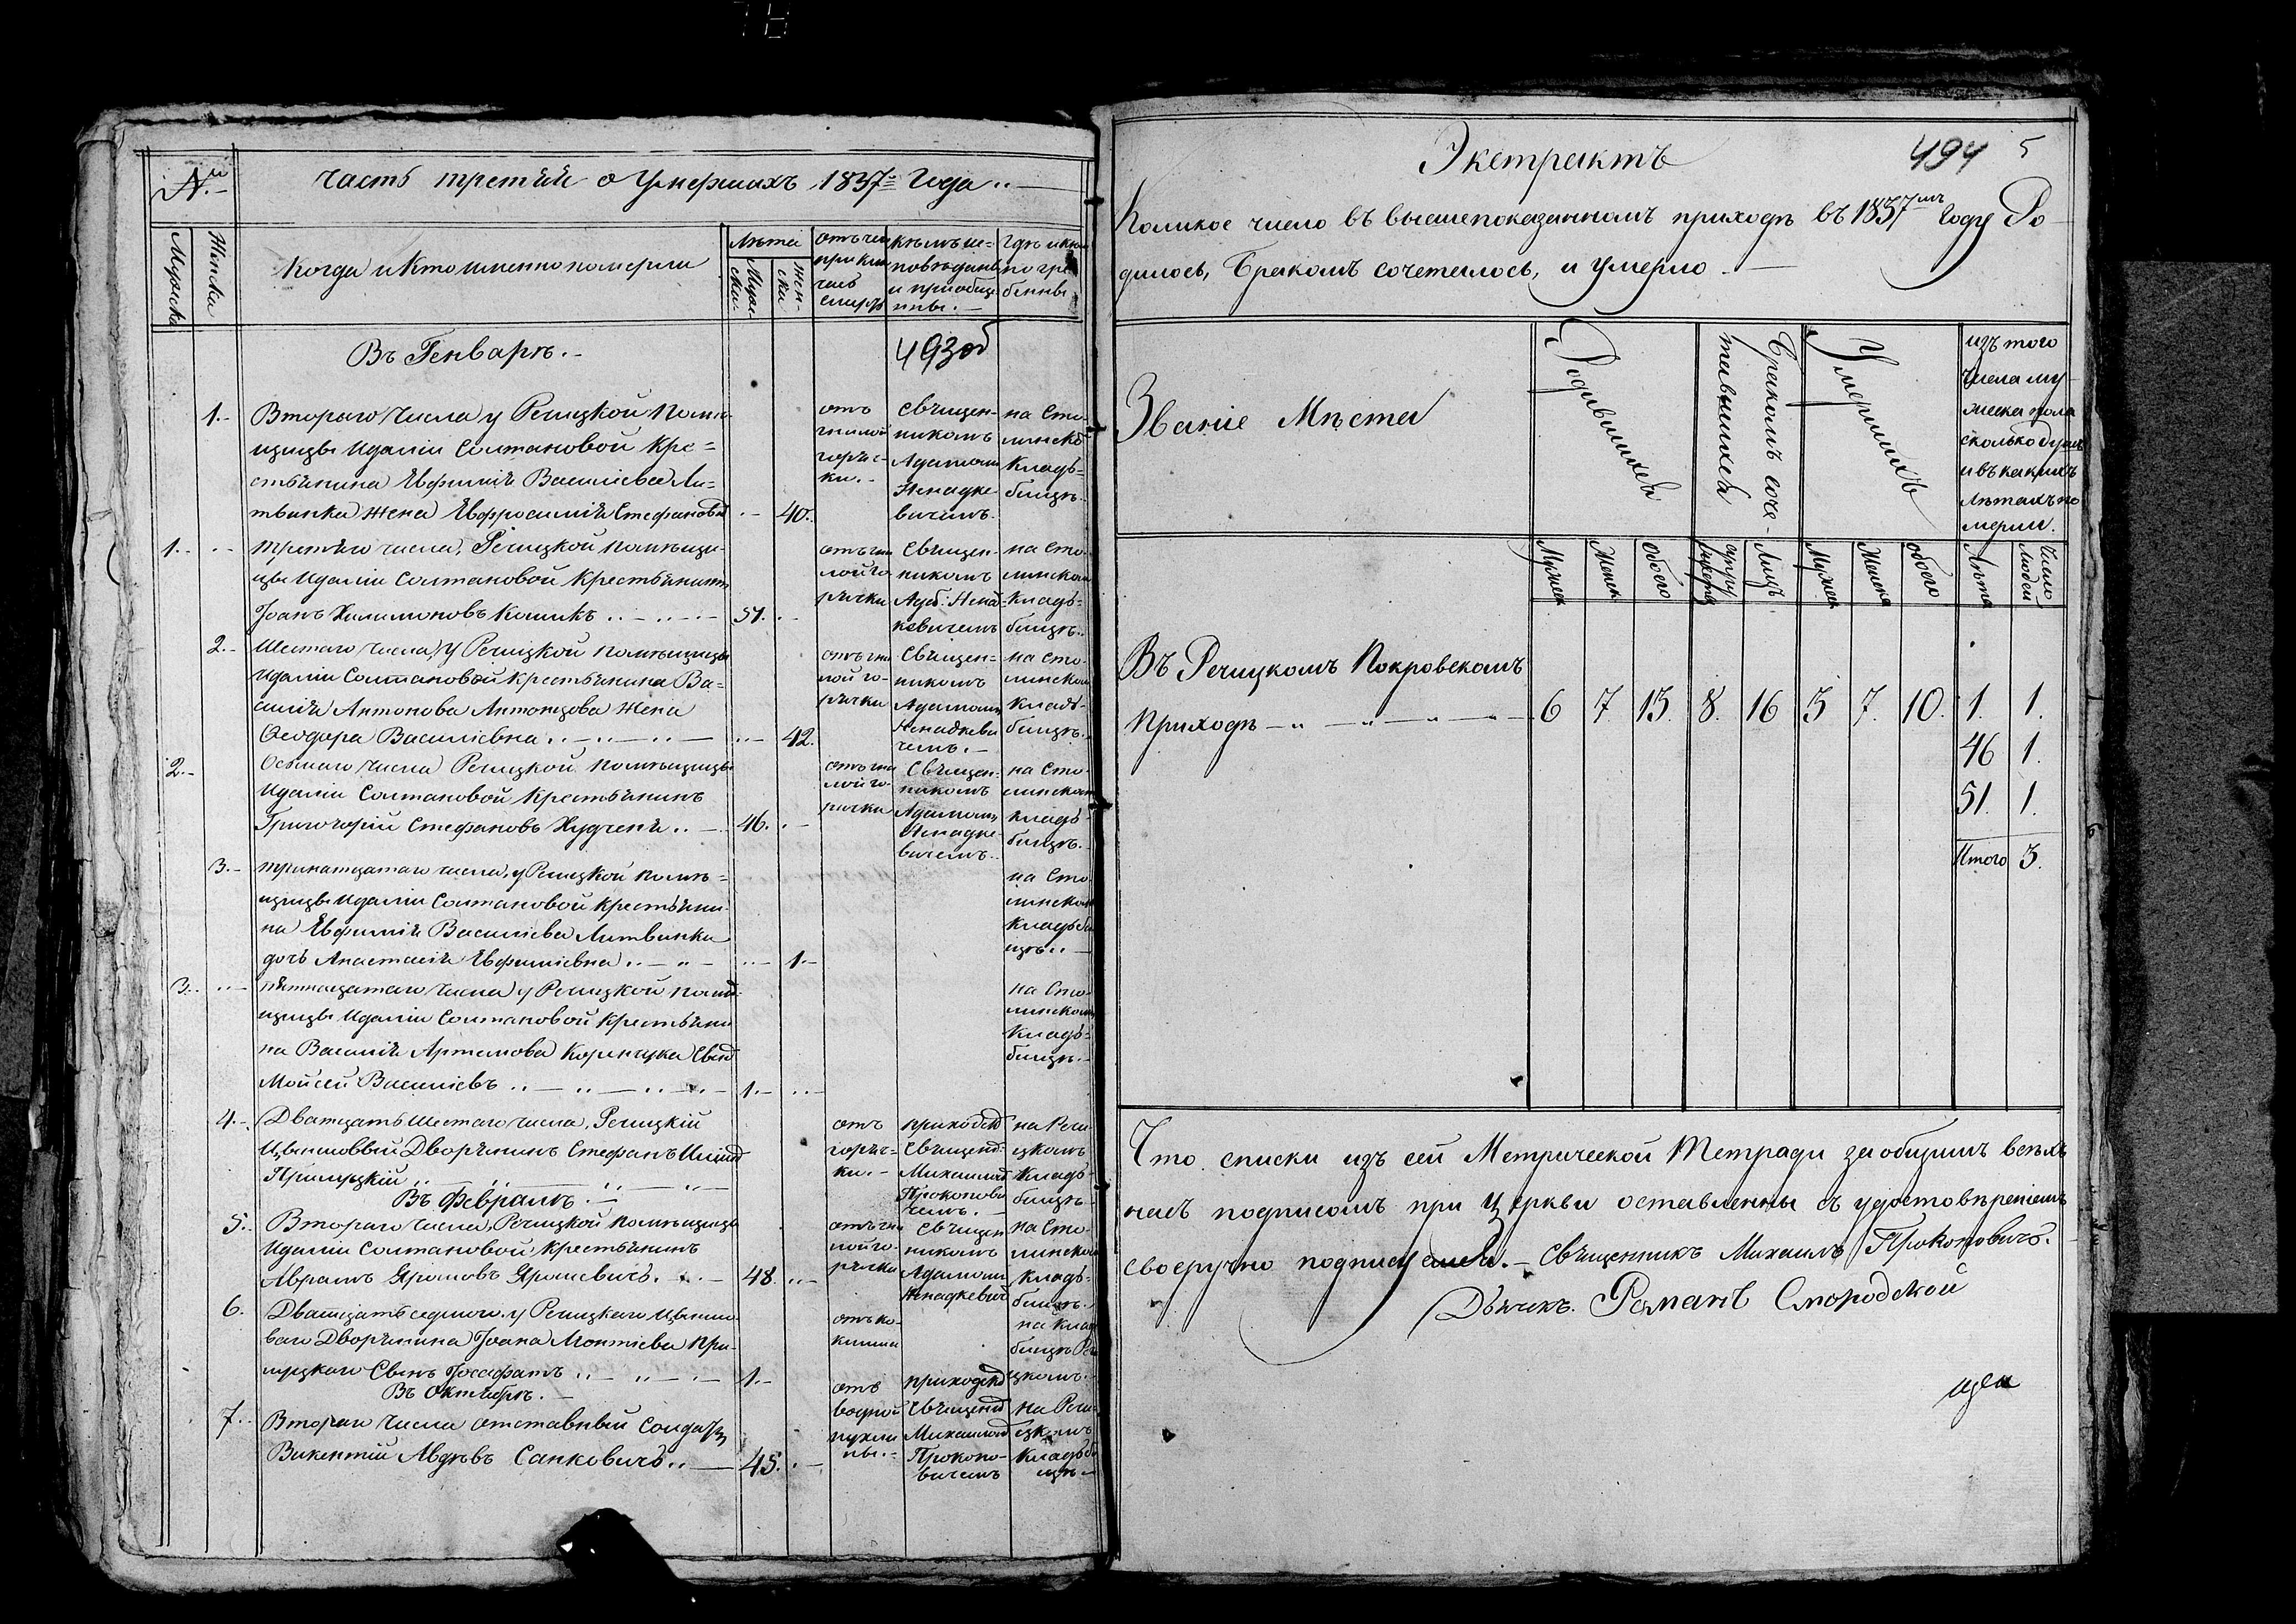 №
Часть третья о Умершихъ 1837го Года
Мужска
Женска
Когда и Кто именно померли
Лѣта
Мужс-
ска
Жен-
ска
отъ чего
приклю-
чилась
смерть
кѣмъ ис-
повѣданы
и приобще-
ны.
Гдѣ и кѣмъ
погре-
бенны
Въ Генварѣ.
493об
1. Втораго числа у Речицкой Помѣ-
щицы Идаліи Солтановой Кре=
стьянина Евфимія Василіева Ли-
твинка Жена Евфросинія Стефанова 40.
отъ
гнилой
горяч-
ки.
Священ-
никомъ
Адамомъ
Ненадке-
вичемъ.
на Сто-
линско-
Кладъ-
бищѣ.
1. третяго числа, Речицкой помѣщи-
цы Идаліи Солтановой Крестьянинъ
Іоанъ Филимоновъ Кошикъ 51.
отъ гни
лой го
рячки
Священ-
никомъ
Ад: Ненад-
кевичемъ
на Сто-
линском
Кладъ-
бищѣ.
2. Шестаго числа, у Речицкой помѣщицы
Идаліи Солтановой Крестьянина Ва=
силія Антонова Антонцова Жена
Ѳеодора Василіевна 42.
отъ гни
лой го-
рячки
Священ=
никомъ
Адамомъ
Ненадкеви
чемъ.
на Сто-
линском
Кладъ-
бищѣ.
2. Осьмаго числа Речицкой помѣщицы
Идаліи Солтановой Крестьянинъ
Григорій Стефановъ Худченя 46.
отъ гни
лой го-
рячки
Священ-
никомъ
Адамомъ
Ненадке-
вичемъ.
на Сто-
линском
кладъ
бищѣ.
3. тринатцатаго числа, у Речицкой помѣ=
щицы Идаліи Солтановой крестьяни-
на Евфимія Василіева Литвинка
дочь Анастасія Евфиміевна 1.
на Сто
линском
кладъби
щѣ.
3. пятнацатаго числа у Речицкой помѣ-
щицы Идаліи Солтановой Крестьяни
на Василія Артемова Корницка Сынъ
Мойсей Василіевъ 1.
на Сто-
линском
Кладъ=
бищѣ.
4. Дватцать шестаго числа, Речицкій
Дворянинъ Стефанъ
отъ
горяч=
ки.
приходск
Священ
Михаиломъ
Прокопови
чемъ.
на Речи
цкомъ
Кладъ
бищѣ
Въ Февралѣ.
5. Втораго числа, Речицкой помѣщицы
Идаліи Солтановой, Крестьянинъ
Аврамъ Ярошовъ Ярошевичь. 48.
отъ гни
лой го-
рячки
Священ
никомъ
Адамомъ
Ненадкевич
на Сто-
линском
Кладъ=
бищѣ.
6. Дватцать седмого, у Речицкаго
Дворянина Іоана
Сынъ Іосафатъ 1.
отъ ко-
клиша
на клад
бищѣ Речи
цкомъ.
Въ Октябрѣ.
7. Втораго числа отставный солдатъ
Викентій Авдѣевъ Санковичь 45.
отъ
водной
пухли
ны.
приходск
Священ
Михаиломъ
Прокопо-
вичемъ
на Речи
цкомъ
Кладъби
щѣ
Экстрактъ
494
5
Коликое число въ вышепоказанномъ приходѣ въ 1837мъ Году Ро-
дилось, Бракомъ сочеталось, и умерло.
Званіе Мѣста
Родившихся
Бракомъ соче-
тавшихся
Умершихъ
изъ того
Числа му-
жеска пола
сколько душъ
и въ какихъ
лѣтахъ по
мерли.
Мужеск
Женск
Обоего
супру
жествъ
Лицъ
Мужеск
Женск
обоего
Лѣта
Число
Людей
Въ Речицкомъ Покровскомъ
Приходѣ 6 7 13. 8. 16 3 7. 10. 1. 1.
46 1.
51. 1.
Итого 3.
Что списки изъ сей Метрической Тетради за общимъ всѣхъ
насъ подписомъ при Церкви оставленны съ удостовѣреніемъ
своеручно подписуемся. Священникъ Михаилъ Прокоповичь.
Дьячекъ Романъ Смородской